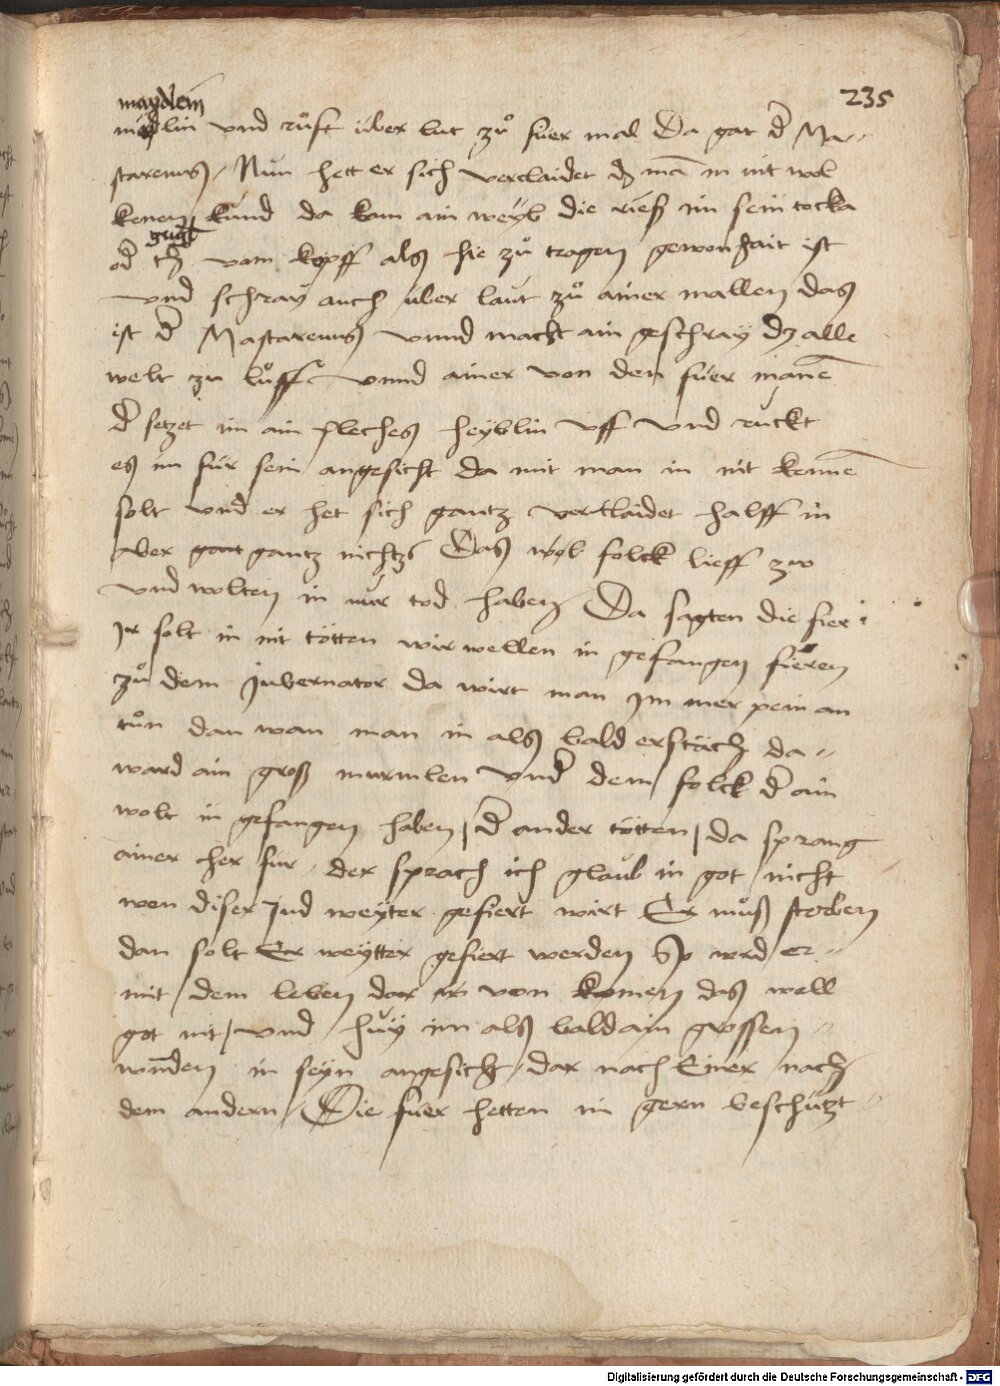 235
maydlein
milin vnd růft über lut zů fuer mal Da gat d̄ Ma-
staremuß / Nun hett er sich verclaidet dz mā in nit wol
kenen kund da kam ain weyb die rieß im sein tocka
gugl
od̄ vom kopff alß hie zů tragen gewonhait ist
vnd schray auch über laut zů ainer mallen daß
ist d̄ Mastaremuß vnnd macht ain geschray dz alle
welt zu lůff vnnd ainer von den fuer manē
d̄ setzet im ain flecheß heyblin vff vnd ruckt
eß im für sein angesicht da mit man in nit kennē
solt vnd er het sich gantz verklaidet halff in
aber gantz nichtzs Daß folck lieff zw
vnd wolten in nur tod haben Da sagten die fier
Ir solt in nit tötten wir wellen in gefangen fieren
zů dem Jubernator da wirt man im mer pein an
tůn dan wan man in alß bald erstäch da
ward ain groß murmlen vnd̄ dem folck d̄ ain
wolt in gefangen haben / d̄ ander tötten / da sprang
ainer her für der sprach ich glaub in got nicht
wen diser Jud weyter gefiert wirt Er můß sterben
dan solt Er weytter gefiert werden So wrd er
mit dem leben dar von komen daß well
got nit / vnd huy im alß bald ain grossen
wnden in seyn angesicht / dar nach Einer nach
dem andern / Die fuer hetten in gern beschützt
Digitalisierung gefördert durch die Deutsche Forschungsgemeinschaft - DFG